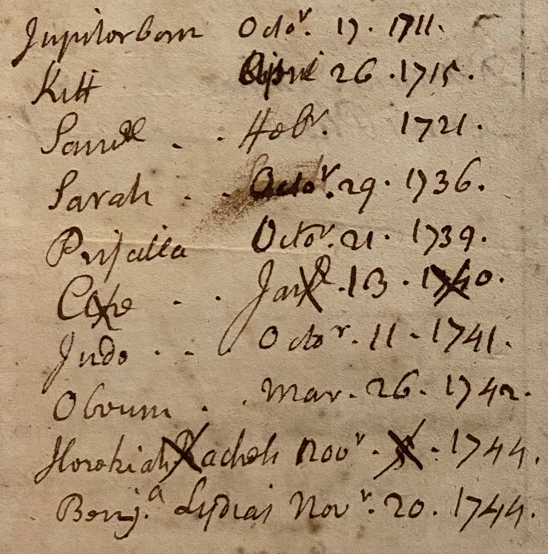 Jupiter born Octor. 17. 1711.
Kitt April 26. 1715.
Saml . . Febr. 1721.
Sarah . . Octor. 29. 1736.
Priscilla Octor. 21. 1739.
Jan 13. 1740.
Octor. 11. 1741.
Obium . . Mar. 26. 1742.
Hezekiah Rachels Novr. 1744.
Benj.a Lydias Novr. 20. 1744.